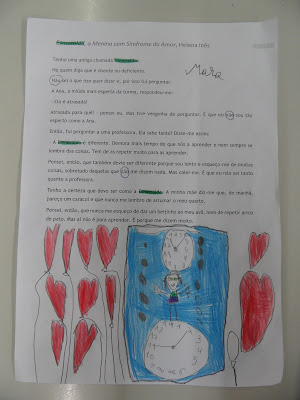 Esmeralda, a Menina com Síndrome do Amor, Helena Inês
Mara
Tenho uma amiga chamada Esmeralda.
Há quem diga que é doente ou deficiente.
Não sei o que isso quer dizer e, por isso fui perguntar.
A Ana, a miúda mais esperta da turma, respondeu-me:
-Ela é atrasada!
Atrasada para quê? - pensei eu, mas tive vergonha de perguntar. É que eu não sou tão
esperta como a Ana.
Então, fui perguntar a uma professora. Ela sabe tanto! Disse-me assim:
- A Esmeralda é diferente. Demora mais tempo do que nós a aprender e nem sempre se
lembra das coisas. Tem de as repetir muito para as aprender.
Pensei, então, que também devia ser diferente porque sou lenta e esqueço-me de muitas
coisas, sobretudo daquelas que não me dizem nada. Mas calei-me. É que eu não sei tanto
quanto a professora.
Tenho a certeza que devo ser como a Esmeralda. A minha mãe diz-me que, de manhã,
pareço um caracol e que nunca me lembro de arrumar o meu quarto.
Pensei, então, que nunca me esqueço de dar um beijinho ao meu avô, nem de repetir arroz
de pato. Mas aí não é para aprender. É porque me dizem muito.